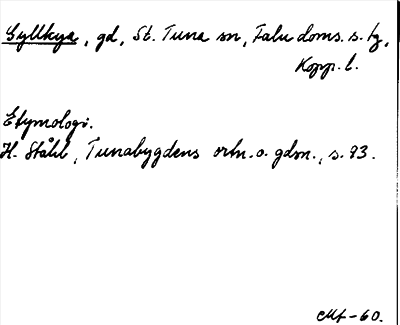 Gyllkya, gd, St. Tuna sn, Falu doms. s. tg,
Kopp. l.
Etymologi.
H. Ståhl, Tunabygdens ortn. o. gdsn., s. 83.
-60.